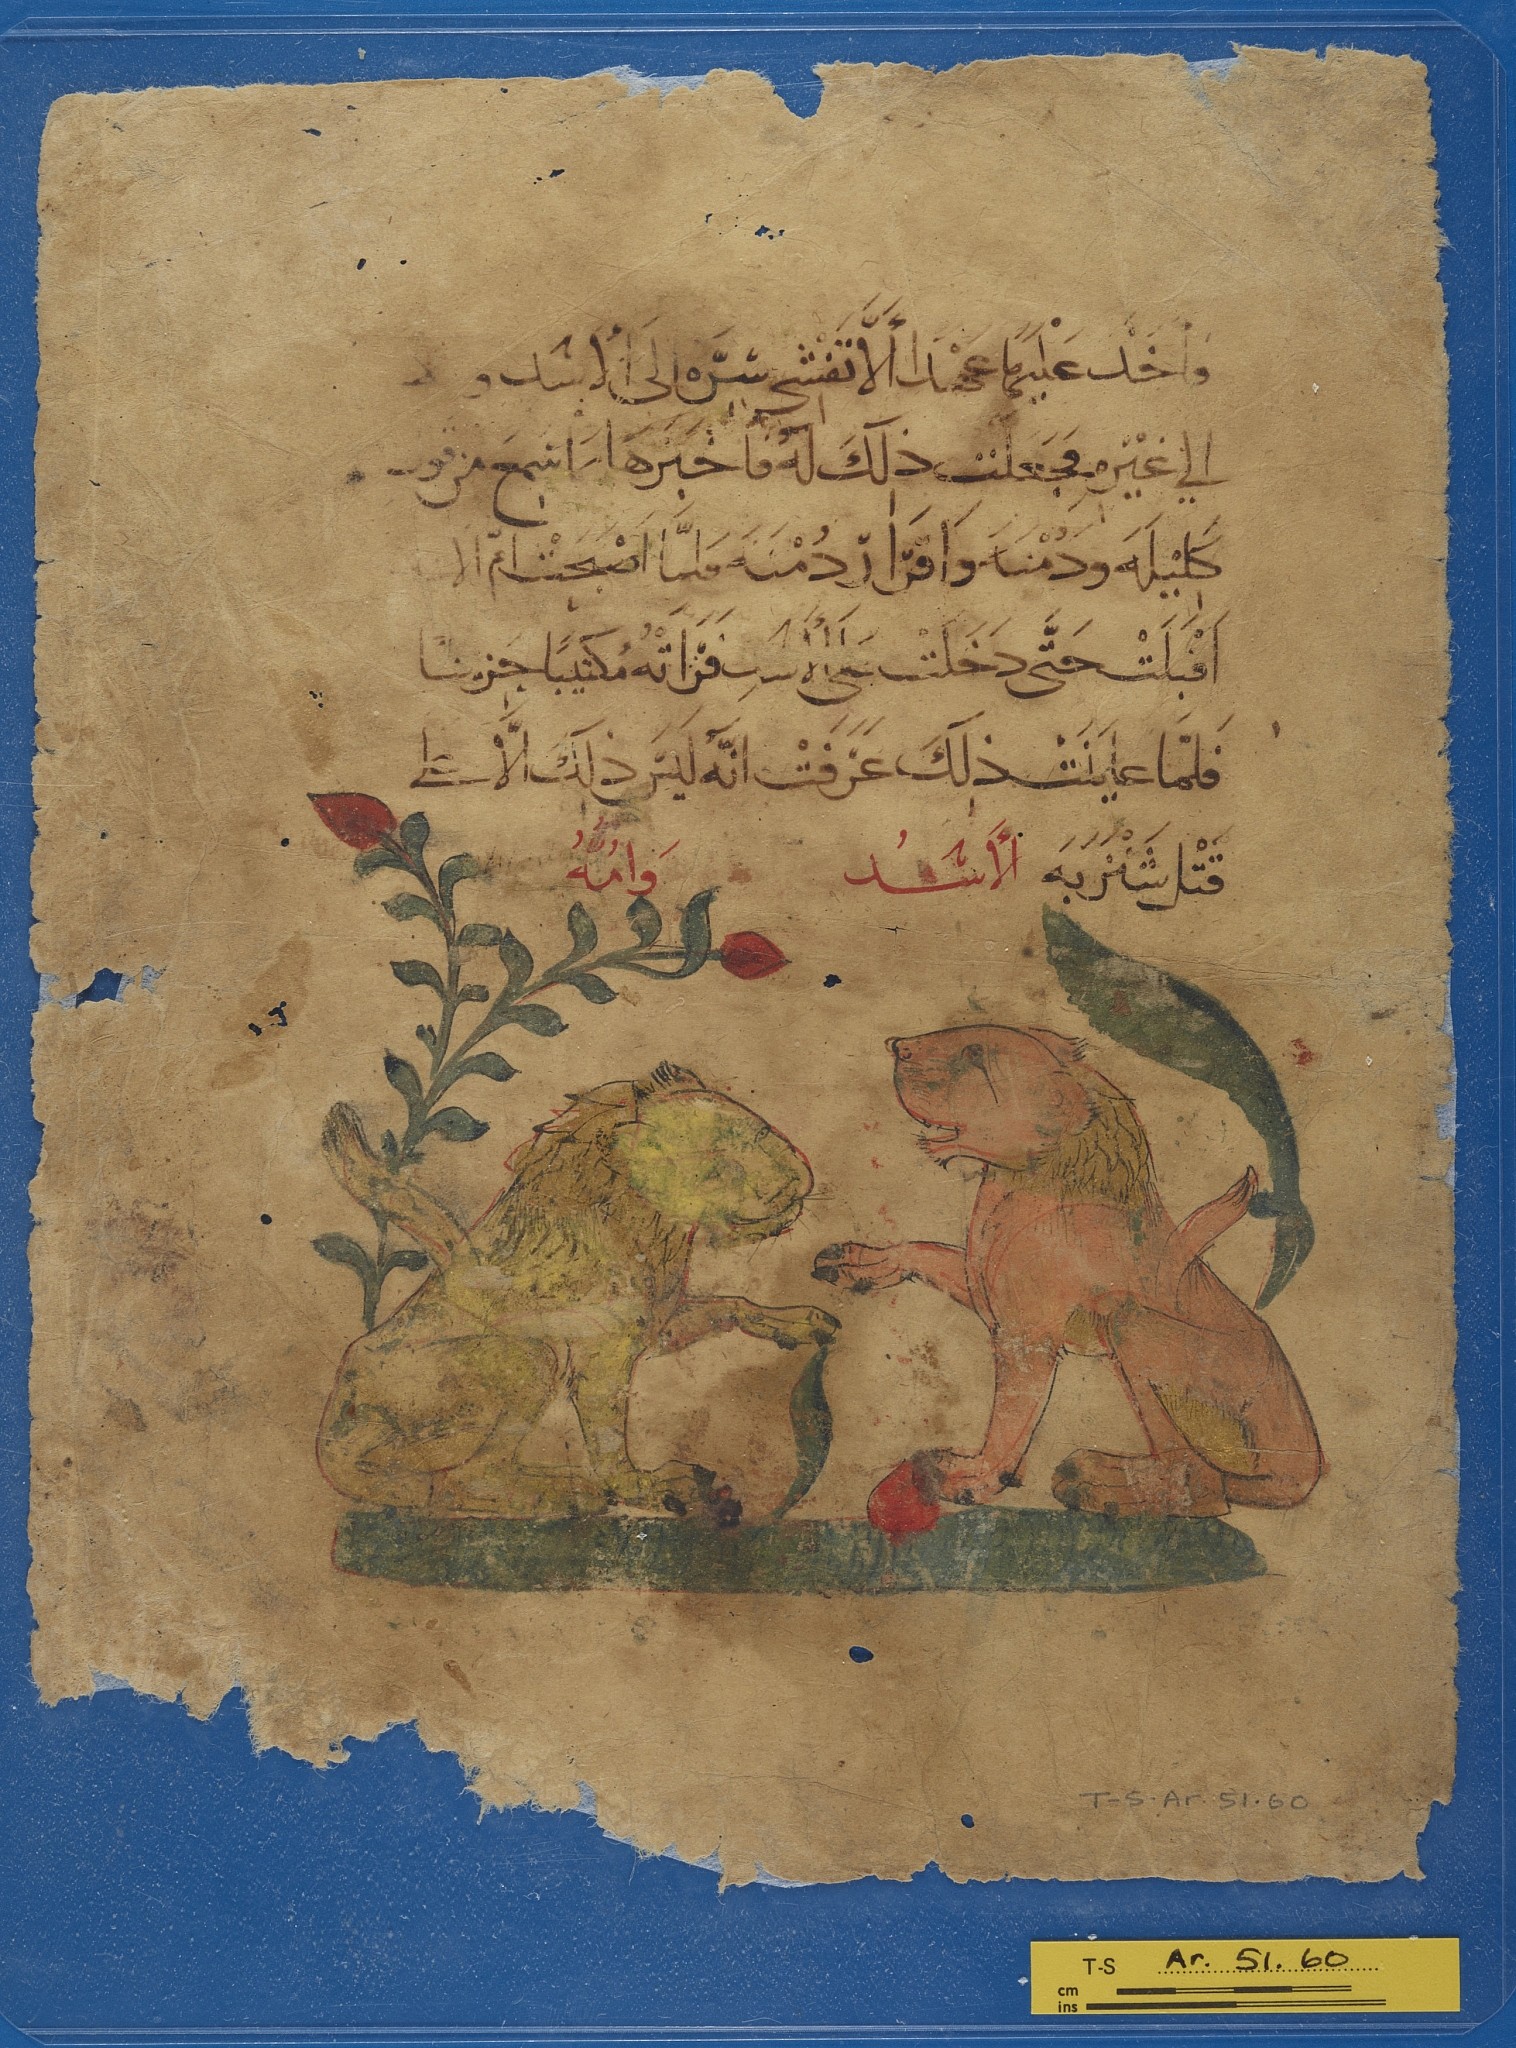 وَاَخَذَتْ عَلَيْهَا عَهْدًا أَلَّا تَفْشِي سِرَّهُ إلَى ألأسَد و
الي غَيْرِهِ فَجَعَلَتْ ذلِكَ لَهُ فَأَخْبَرَهَا بِمَا سَمِعَ مِن قول
كَلِيْلَه وَدُمْنَه وَاقْرَار دُمْنَه فَلمَّا اَصْبَحَتْ امّ الا
اَقْبَلَتْ حَتَّى دَخَلَتْ عَلَى ألأسَدِ فَرَأتْهُ مُكتيبًا حَزينًا
فَلمّا عايَنَتْ ذلِكَ عَرَفَتْ انَّهُ لَيْسَ ذلِكَ الَّا علي
قَتْل شَنْزَبَه ألأسَدُ وَامُّهُ
T-S. Ar. 51.60
T-S Ar. 51. 60
cm
ins